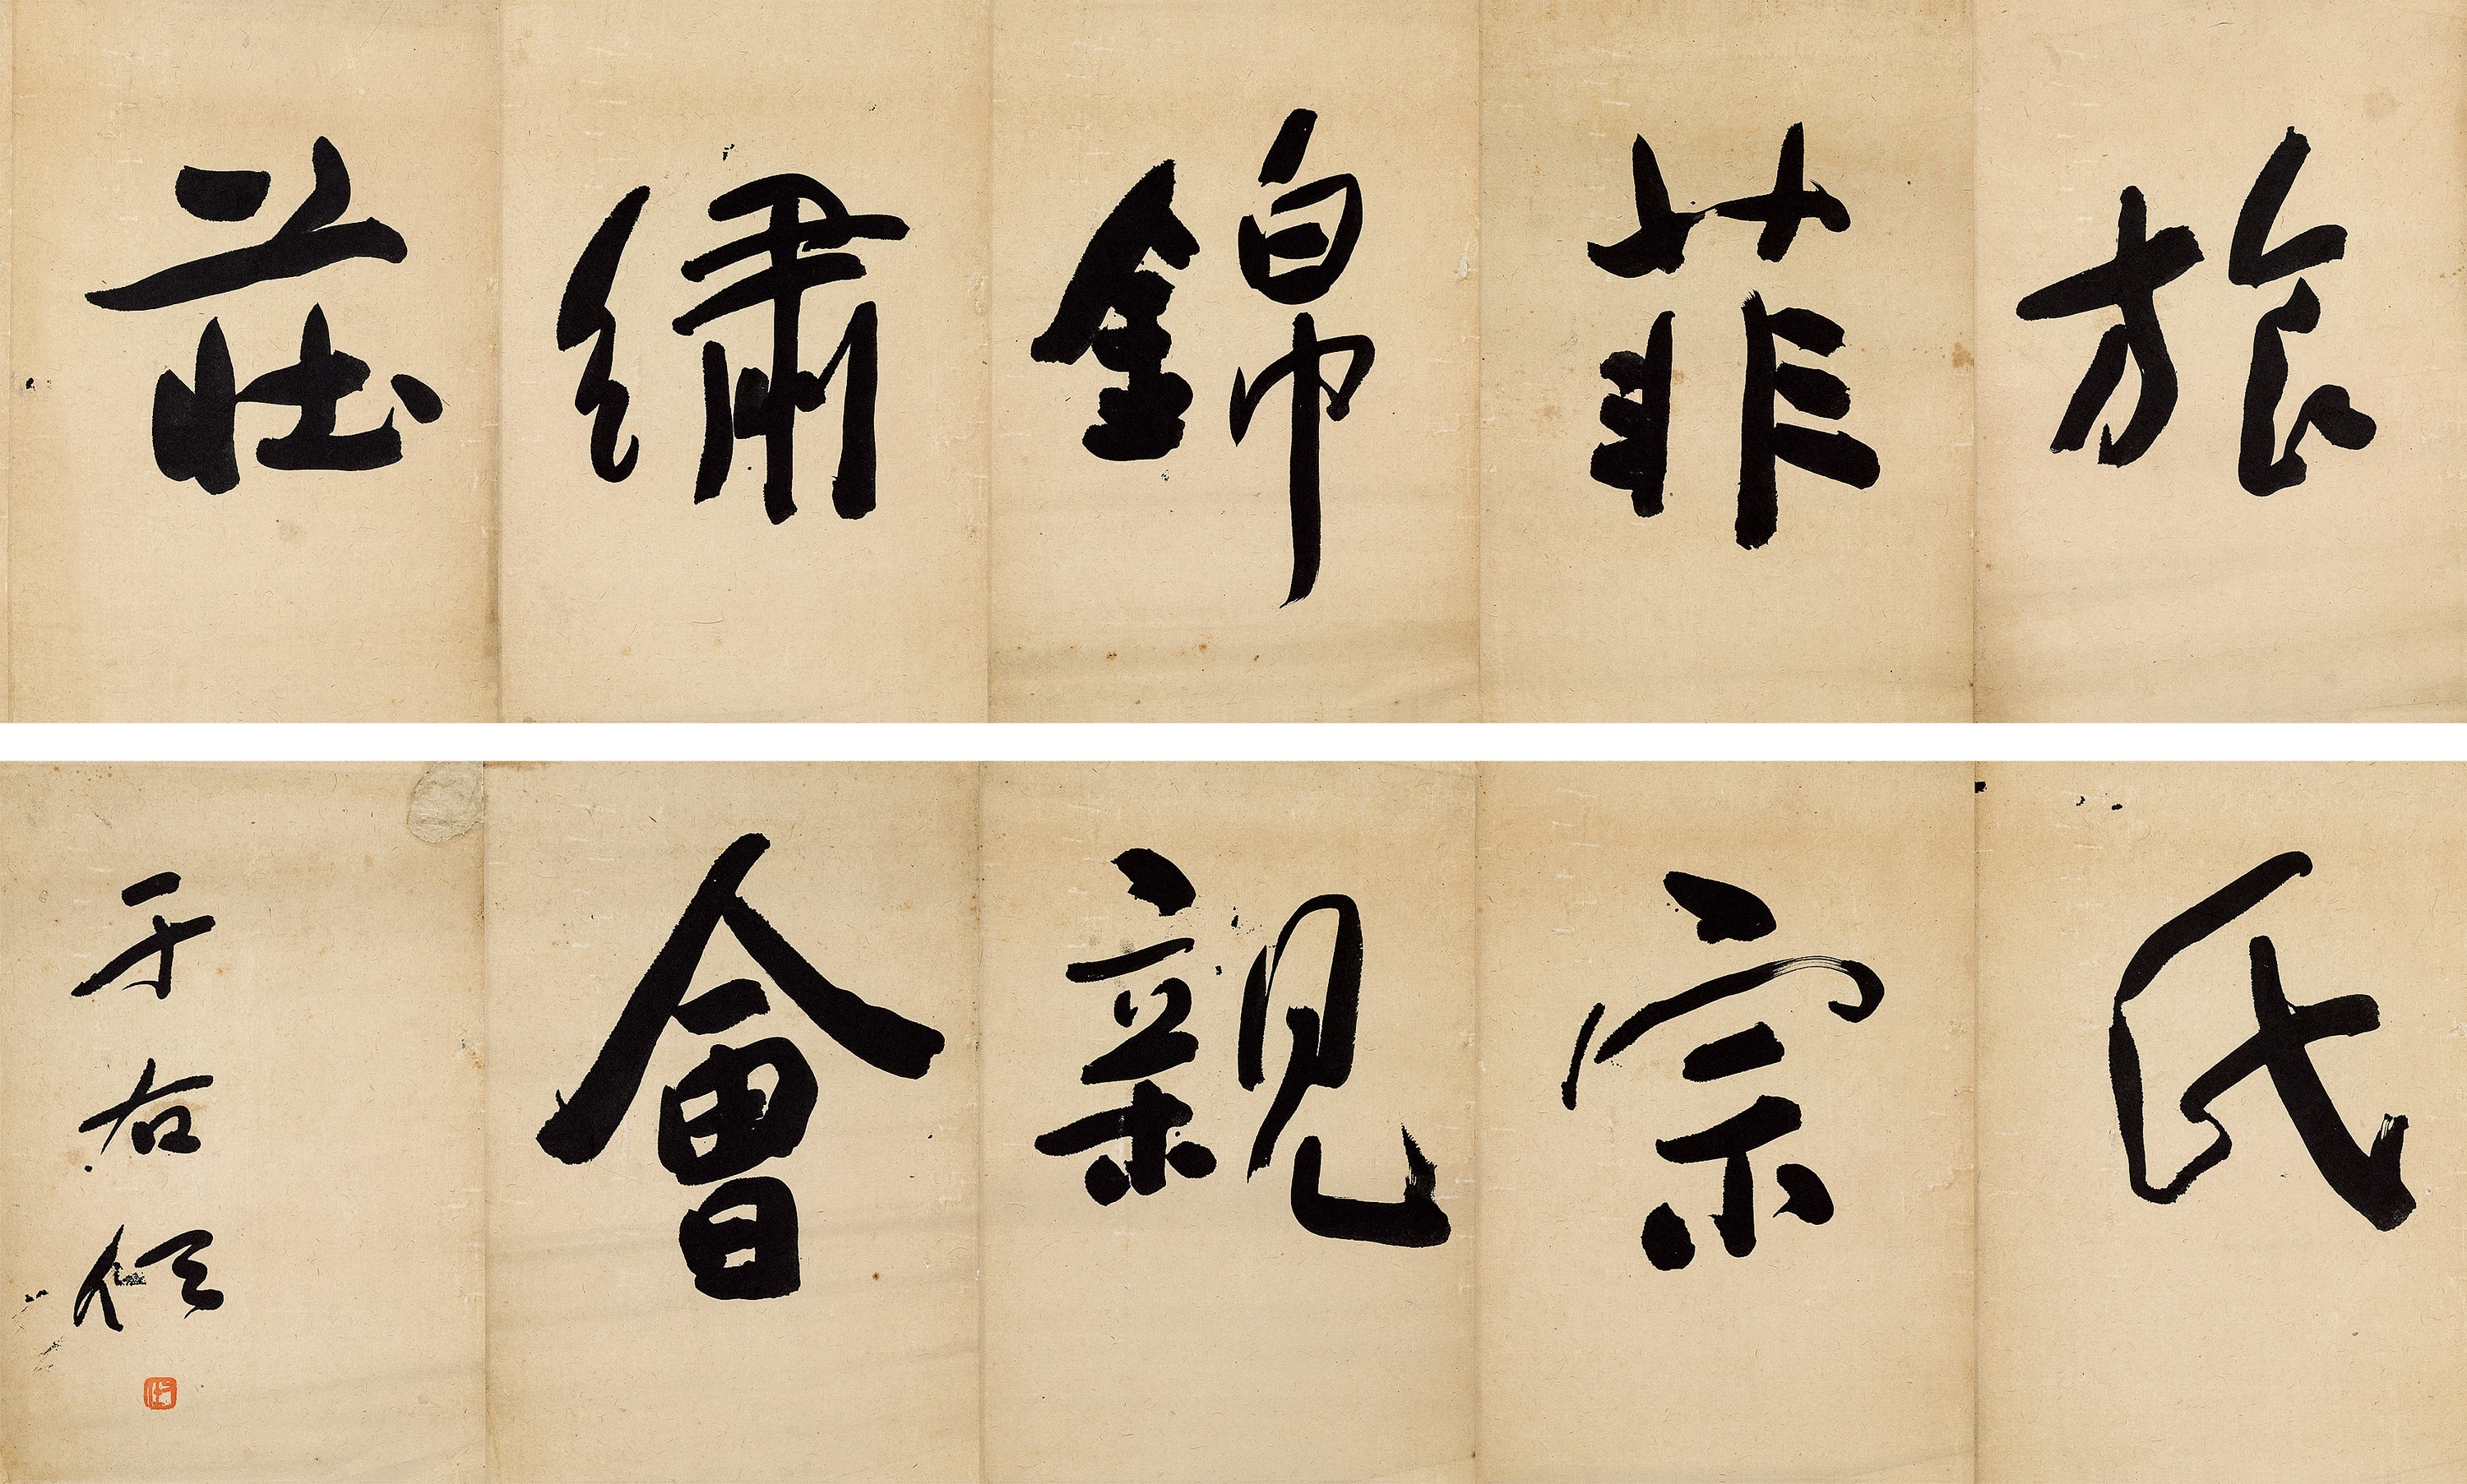 旅菲錦繡莊
氏宗親會
于右任